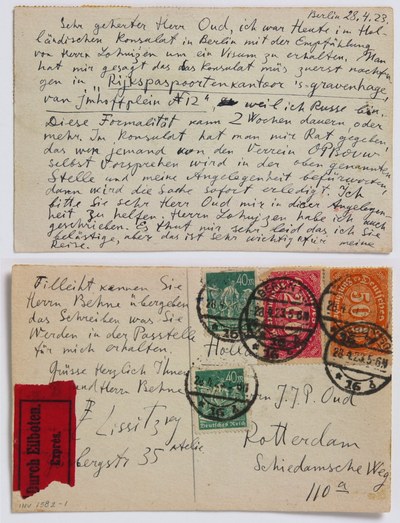 Berlin 23.4.23.
Sehr geherter Herr Oud, ich war Heute im Hol-
ländischen Konsulat in Berlin mit der Empfühlung
von Herrn Lohuijen um ein Visum zu erhalten. Man
hat mir gesagt das das Konsulat müs zuerst nachfra-
gen in „Rijkspaspoortenkantoor 's-gravenhage,
van Imhoffplein N12" weil ich Russe bin.
Diese Formalität kann 2 Wochen dauern, oder
mehr. Im Konsulat hat man mir Rat gegeben,
das wen jemand von den Verrein OPBOUW
selbst Vorsprechen wird in der obengenannten
Stelle und meine Angelegenheit befürworten,
dann wird die Sache sofort erledigt. Ich
bitte Sie sehr Herr Oud mir in dieser Angelegen-
heit zu helfen. Herrn Lohuijen habe ich auch
geschrieben. Es thut mir sehr leid das ich Sie
belästige, aber das ist sehr wichtig für meine
Reise.
Filleiht kennen Sie
Herrn Behne übergeben
das Schreiben was Sie
Werden in der Passtelle
für mich erhalten.
Grüsse Herzlich Ihnen
und Herrn Behne
El Lissitzky
Atelie
bergstr 35
Durch Eilboten.
Exprès.
INV 1982-1
40 M
200
500
BERLIN
28.4.23.5-6N
* 16 d
40 M
Deutsches Reich
Holland
Herrn J.J.P. Oud
Rotterdam
Schiedamsche Weg
110 a